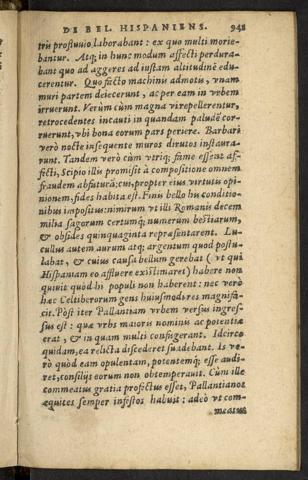 DE BEL. HISPANIENS. 948
tris profluuio, laborabant : ex quo multi morie-
bantur. Atq; in hunc modum affecti perdura-
bant quo ad aggeres ad iustam altitudinē edu-
cerentur. Quo facto machinis admotis, vnam
muri partem deiecerunt, ac per eam in vrbem
irruerunt. Verùm cùm magna vi repellerentur,
retrocedentes incauti in quandam paludē cor-
ruerunt, vbi bona eorum pars periere. Barbari
verò nocte insequente muros dirutos instaura-
runt. Tandem verò cùm vtriq; fame essent af-
fecti, Scipio illu promisit à compositione omnem
fraudem abfuturā: cui, propter eius virtutis opi-
nionem, fides habita est. Finis bello his conditio-
nibus impositus: nimirum vt illi Romanis decem
millia sagorum certumq; numerum bestiarum,
& obsides quinquaginta repræsentarent. Lu-
cullus autem aurum atq; argentum quod postu-
labat, & cuius causa bellum gerebat (vt qui
Hispaniam eo affluere existimaret) habere non
quiuit quòd hi populi non haberent: nec verò
hæc Celtiberorum gens huiusmodi res magnifa-
cit. Pòst iter Pallantiam vrbem versus ingres-
sus est : quæ vrbs maioris nominis ac potentiæ
erat, & in quam multi confugerant. Idcirco
quidam, ea relicta discederet suadebant. Is ve-
rò quòd eam opulentam, potentemq; esse audi-
ret, consilijs eorum non obtemperauit. Cùm ille
commeatus gratia profectus esset, Pallantianos
æquites semper infestos habuit : adeò vt com-
meatus